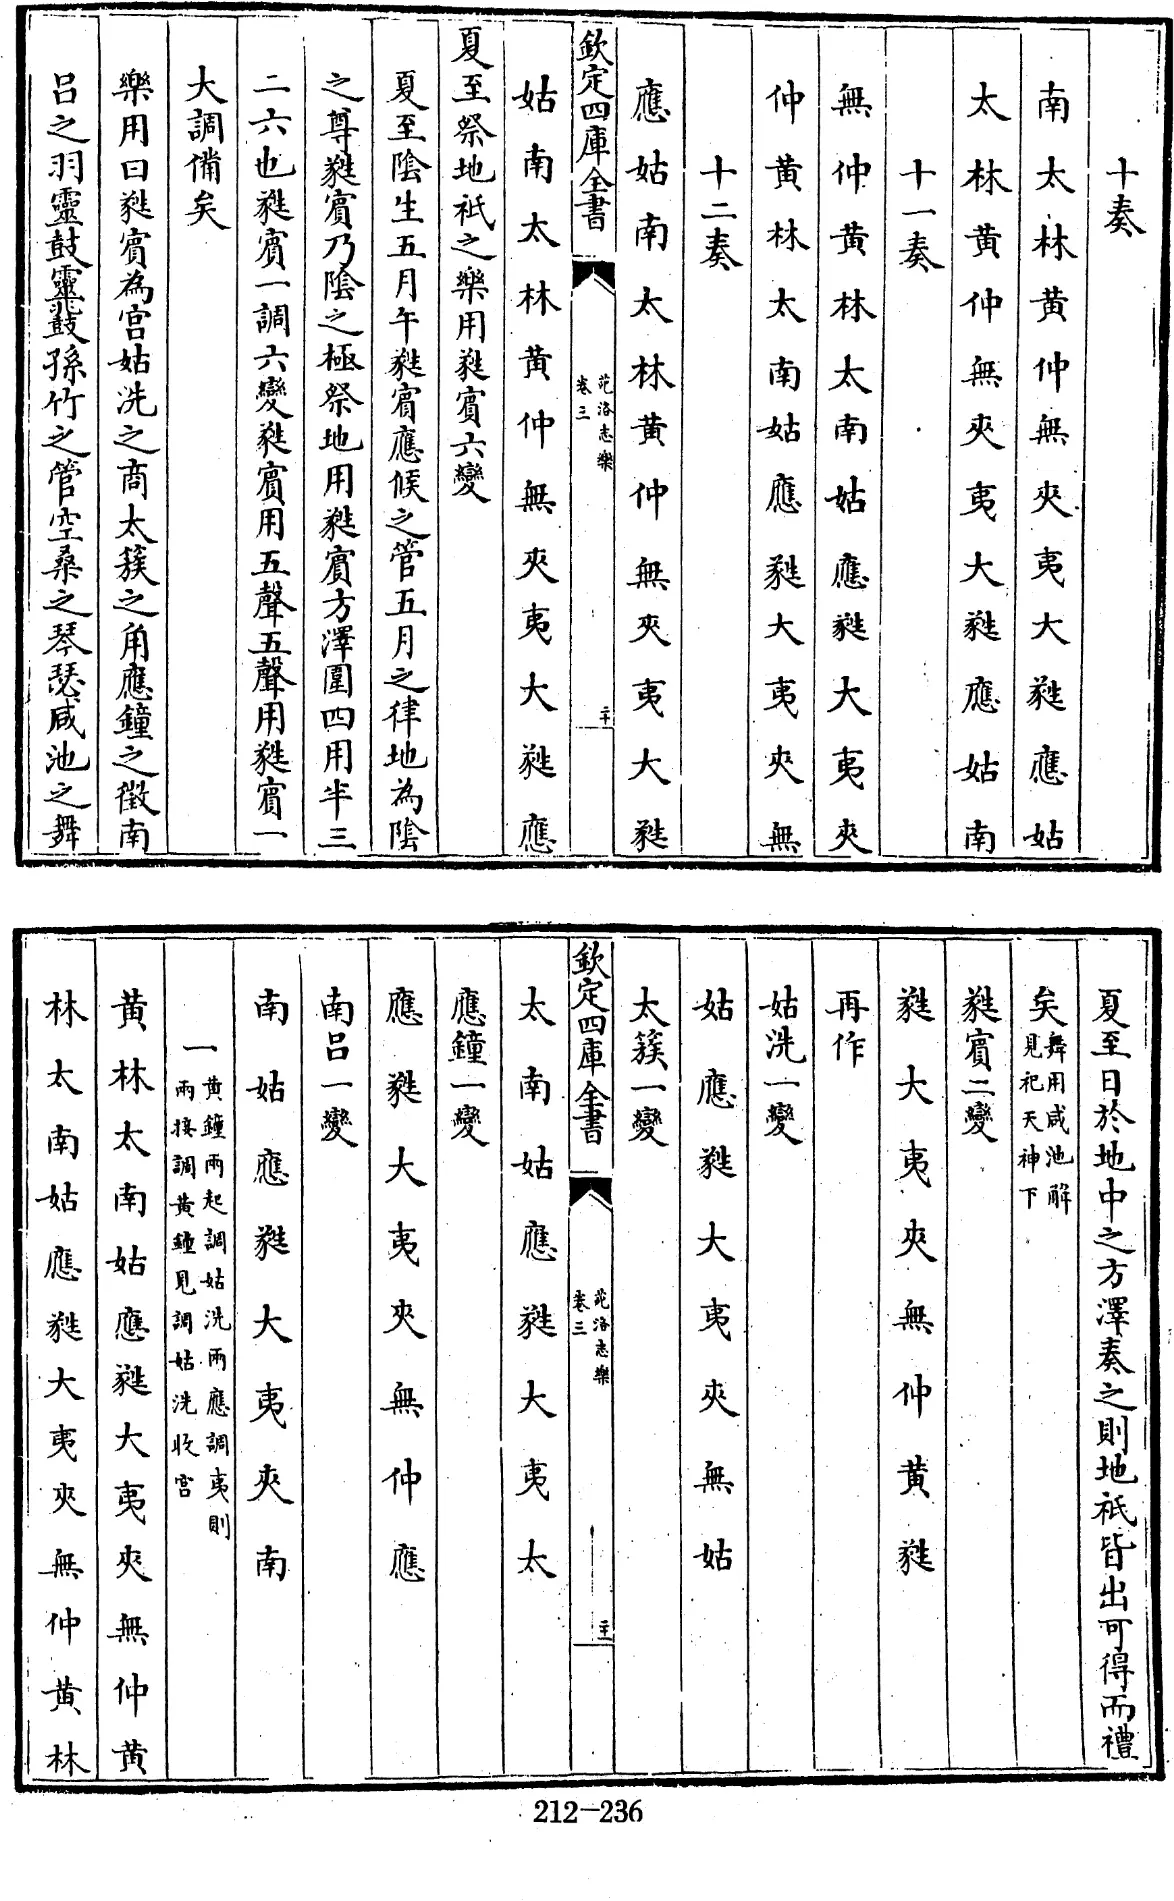 十奏
南太林黄仲無夾夷大蕤應姑
太林黄仲無夾夷大蕤應姑南
十一奏
無仲黄林太南姑應蕤大夷夾
仲黄林太南姑應蕤大夷夾無
十二奏
應姑南太林黄仲無夾夷大蕤
欽定四庫全書
苑洛志樂
卷三
二十
姑南太林黄仲無夾夷大蕤應
夏至祭地祇之樂用蕤賔六變
夏至陰生五月午蕤賔應候之管五月之律地為陰
之尊蕤賔乃陰之極祭地用蕤賔方澤圍四用半三
二六也蕤賔一調六變蕤賔用五聲五聲用蕤賔一
大調備矣
樂用曰蕤賔為宫姑洗之商太簇之角應鐘之徵南
吕之羽靈鼓靈鼗孫竹之管空桑之琴瑟咸池之舞
夏至日於地中之方澤奏之則地祇皆出可得而禮
矣
舞用咸池解
見祀天神下
蕤賔二變
蕤大夷夾無仲黄蕤
再作
姑洗一變
姑應蕤大夷夾無姑
太簇一變
欽定四庫全書
苑洛志樂
卷三
二十一
太南姑應蕤大夷太
應鐘一變
應蕤大夷夾無仲應
南吕一變
南姑應蕤大夷夾南
一
黄鐘兩起調姑洗兩應調夷則
兩接調黄鐘見調姑洗收宫
黄林太南姑應蕤大夷夾無仲黄
林太南姑應蕤大夷夾無仲黄林
212-236